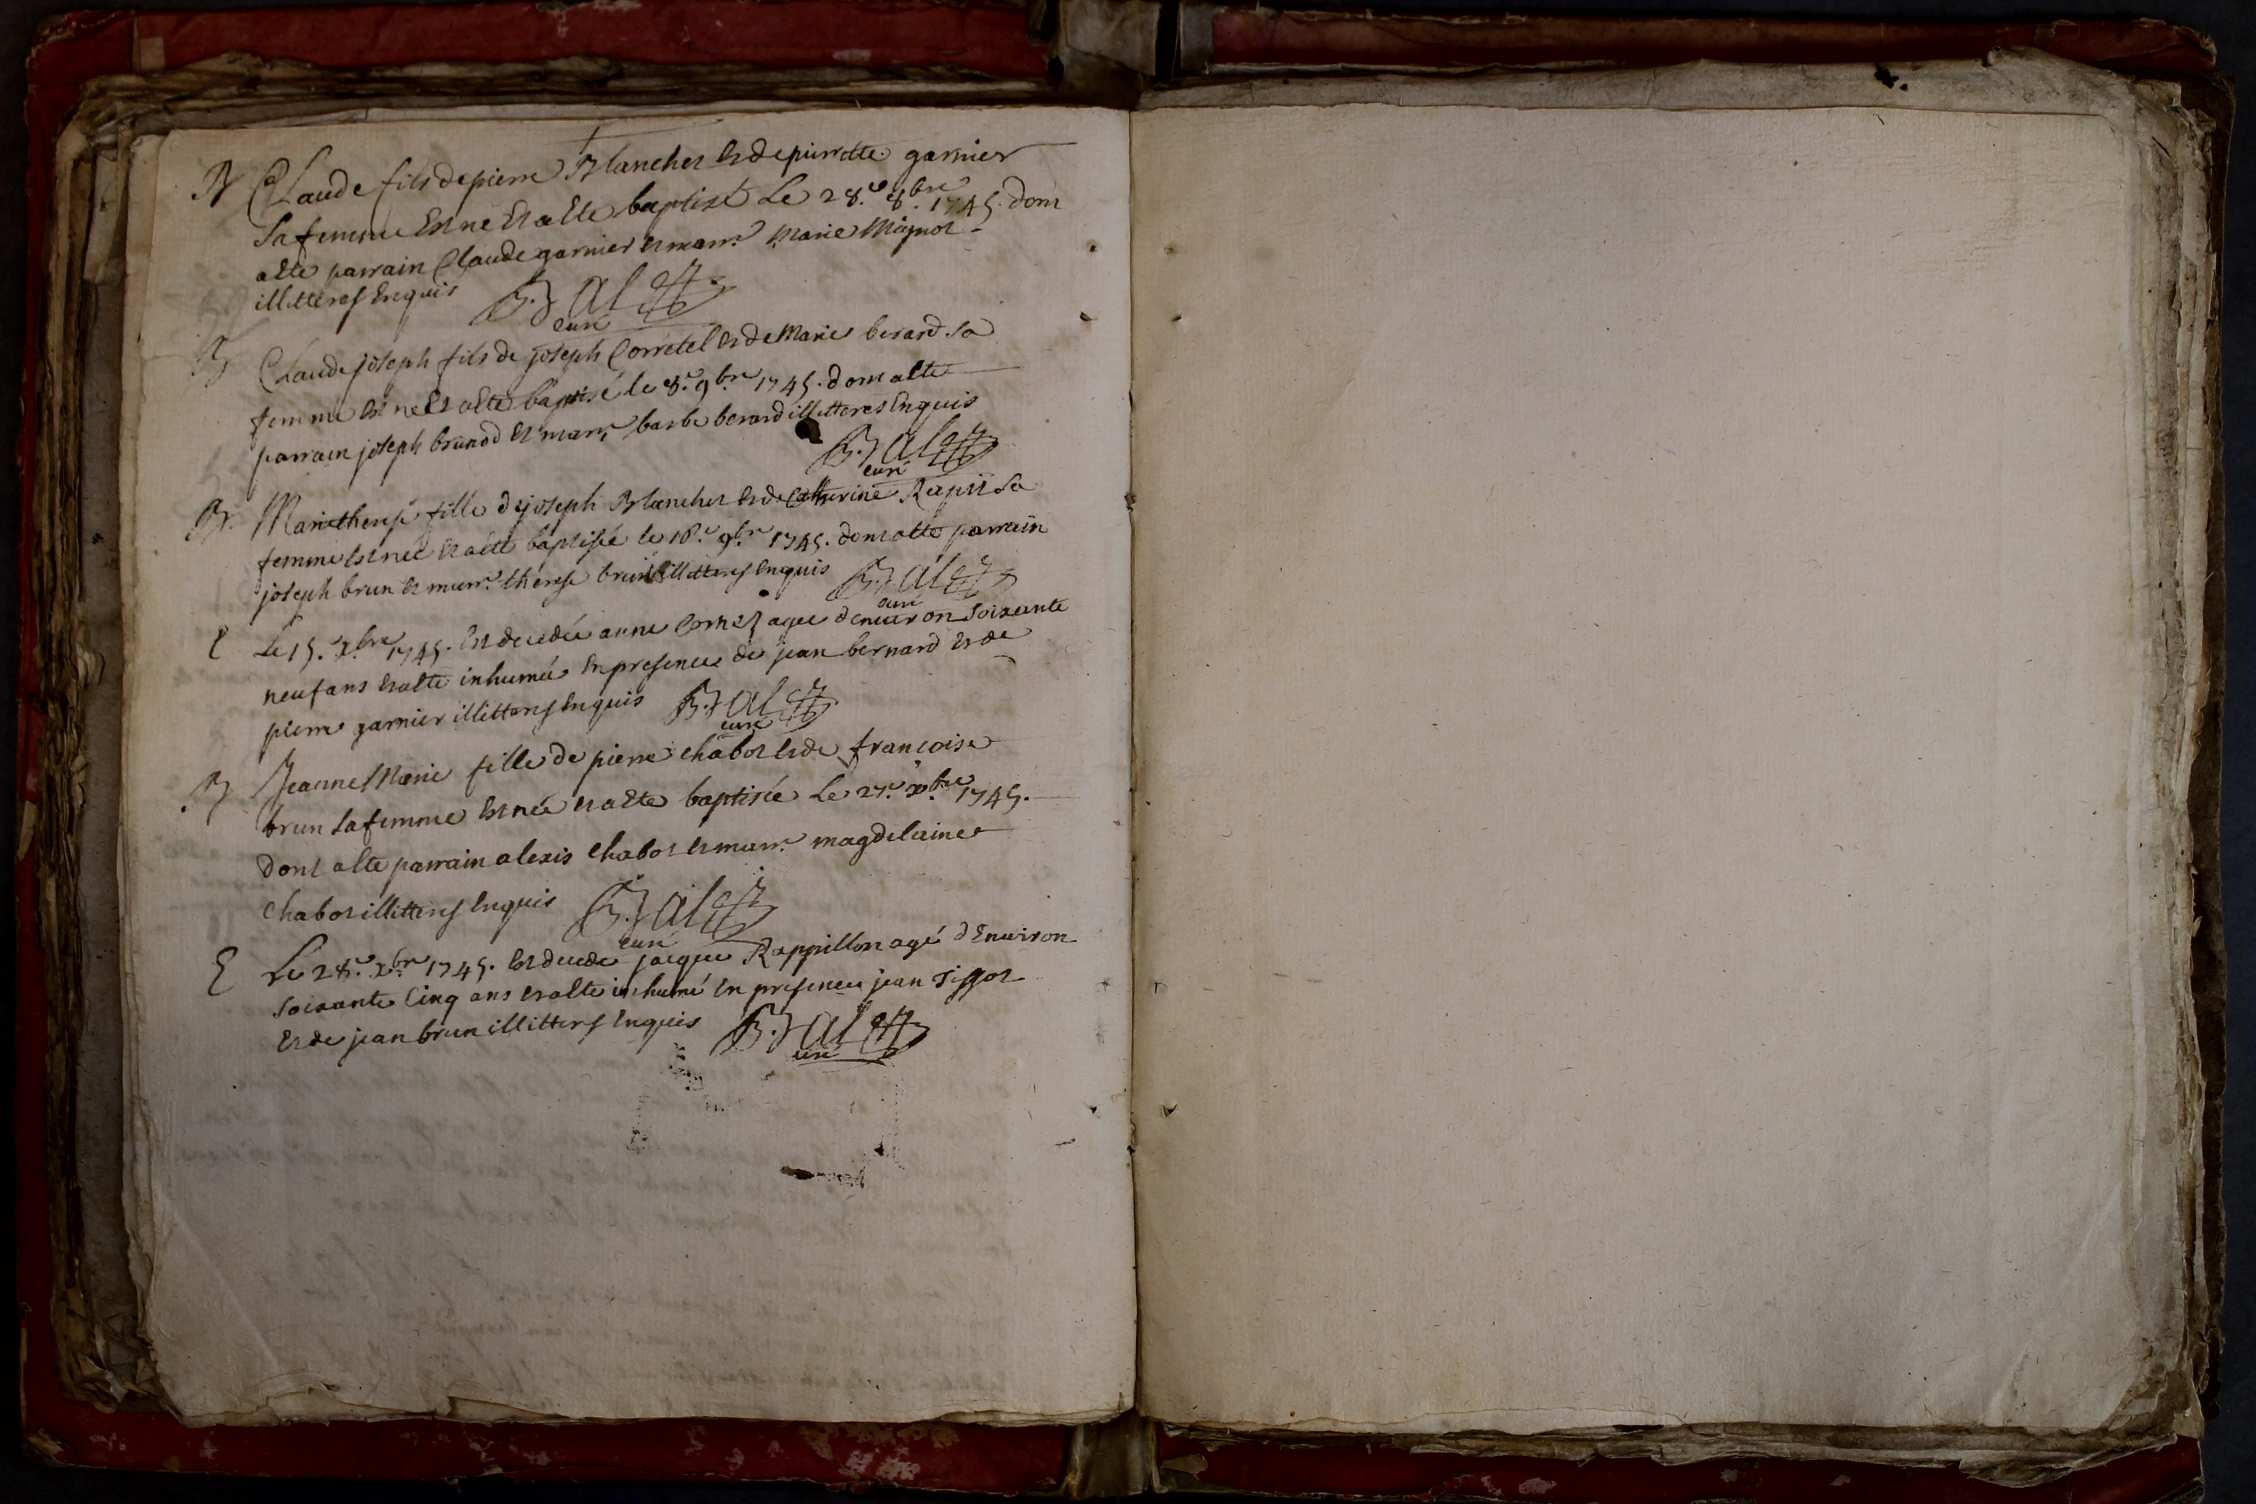 B Claude fils de pierre Blanchet et de pierrette garnier
sa femme est né et a ete baptisé le 28.e 8.bre 1745. dont
a ete parrain Claude garnier et marr.e marie Mignot
illitteres enquis
curé
B Claude joseph fils de joseph Corretel et de Marie berard sa
femme est né et a ete baptisé le 8.e 9.bre 1745. dont a ete
parrain joseph brunod et marr.e barbe berard illitteres enquis
curé
B. Marie therese fille de joseph Blanchet et de Catherine sa
femme est née et a été baptisée le 18.e 9.bre 1745. dont a ete parrain
joseph brun et marr.e therese brun illitteres enquis
curé
E Le 15. x.bre 1745. est decedée anne agee denviron soixante
neuf ans et a ete inhumée en presence de jean bernard et de
pierre garnier illitteres enquis
curé
B Jeanne Marie fille de pierre chabot et de francoise
brun sa femme est née et a ete baptisée le 27.e x.bre 1745.
dont a ete parrain alexis chabot et marr.e magdelaine
chabot illitteres enquis
curé
E Le 28.e x.bre 1745. est decede jacque Rappillon agé denviron
soixante cinq ans et a ete inhumé en presence jean
et de jean brun illitteres enquis
curé